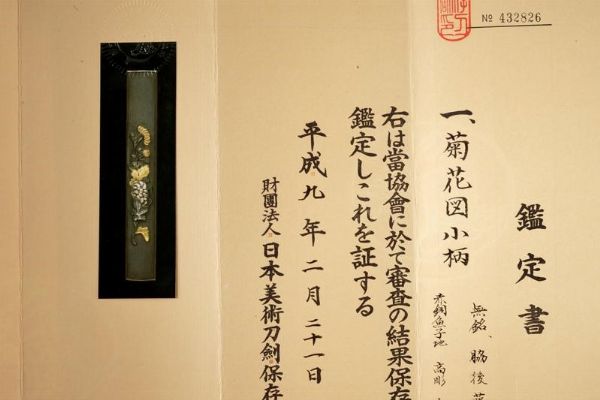 № 432826
鑑定書
一、菊花図小柄
無銘、脇後藤
赤銅魚子地 高彫
右は當協會に於て審査の結果保存
鑑定しこれを証する
平成九年二月二十一日
財團法人 日本美術刀劍保存